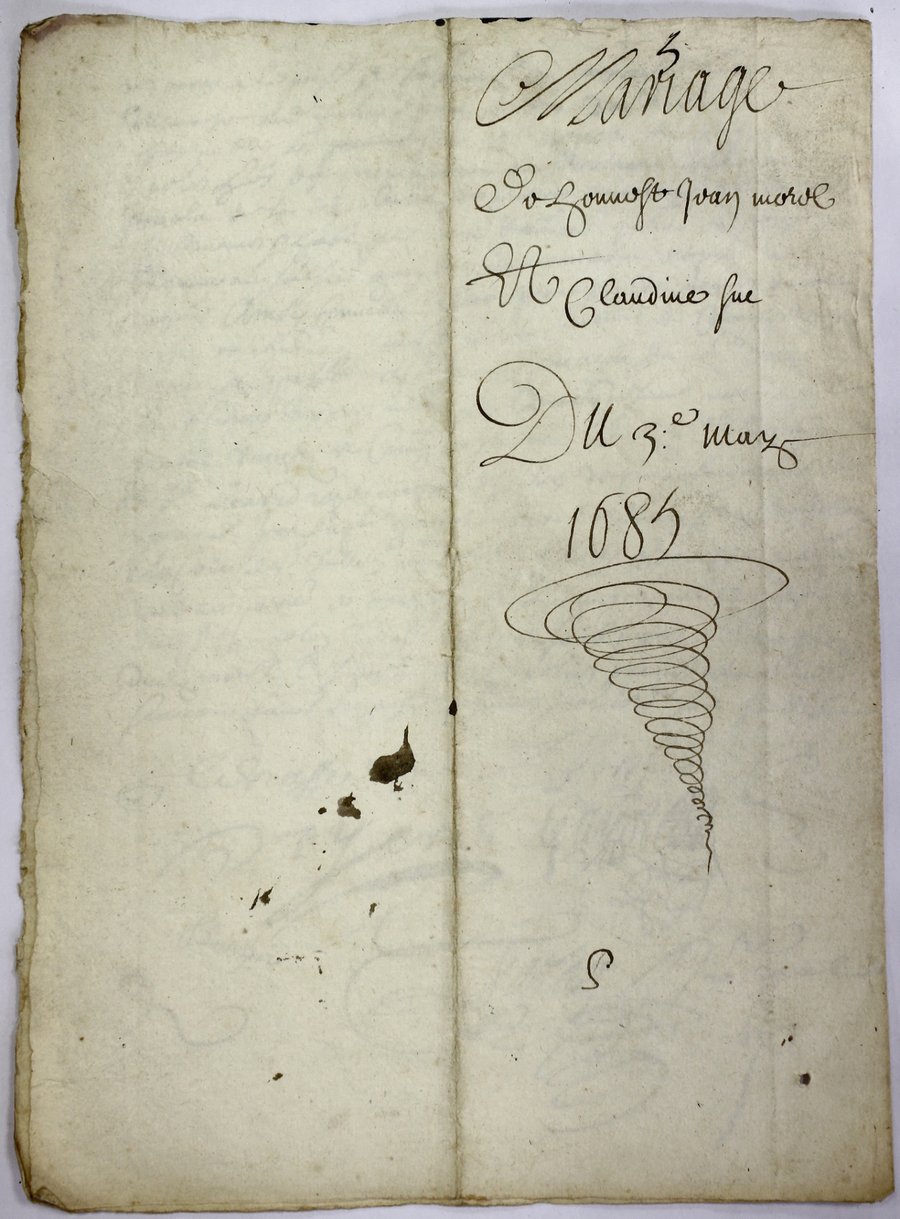 Mariage
De honneste Jean morel
Et Claudine sue
Du 3.e may
1685